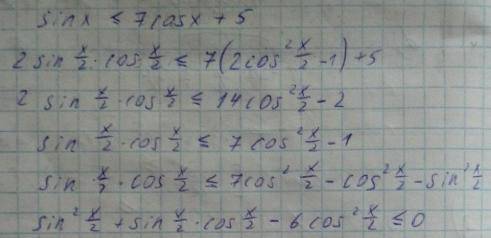 sin x ≤ 7cos x + 5
2 sin x/2 · cos x/2 ≤ 7(2cos² x/2 - 1) + 5
2 sin x/2 · cos x/2 ≤ 14cos² x/2 - 2
sin x/2 · cos x/2 ≤ 7 cos² x/2 - 1
sin x/2 · cos x/2 ≤ 7cos² x/2 - cos² x/2 - sin² x/2
sin² x/2 + sin x/2 · cos x/2 - 6cos² x/2 ≤ 0